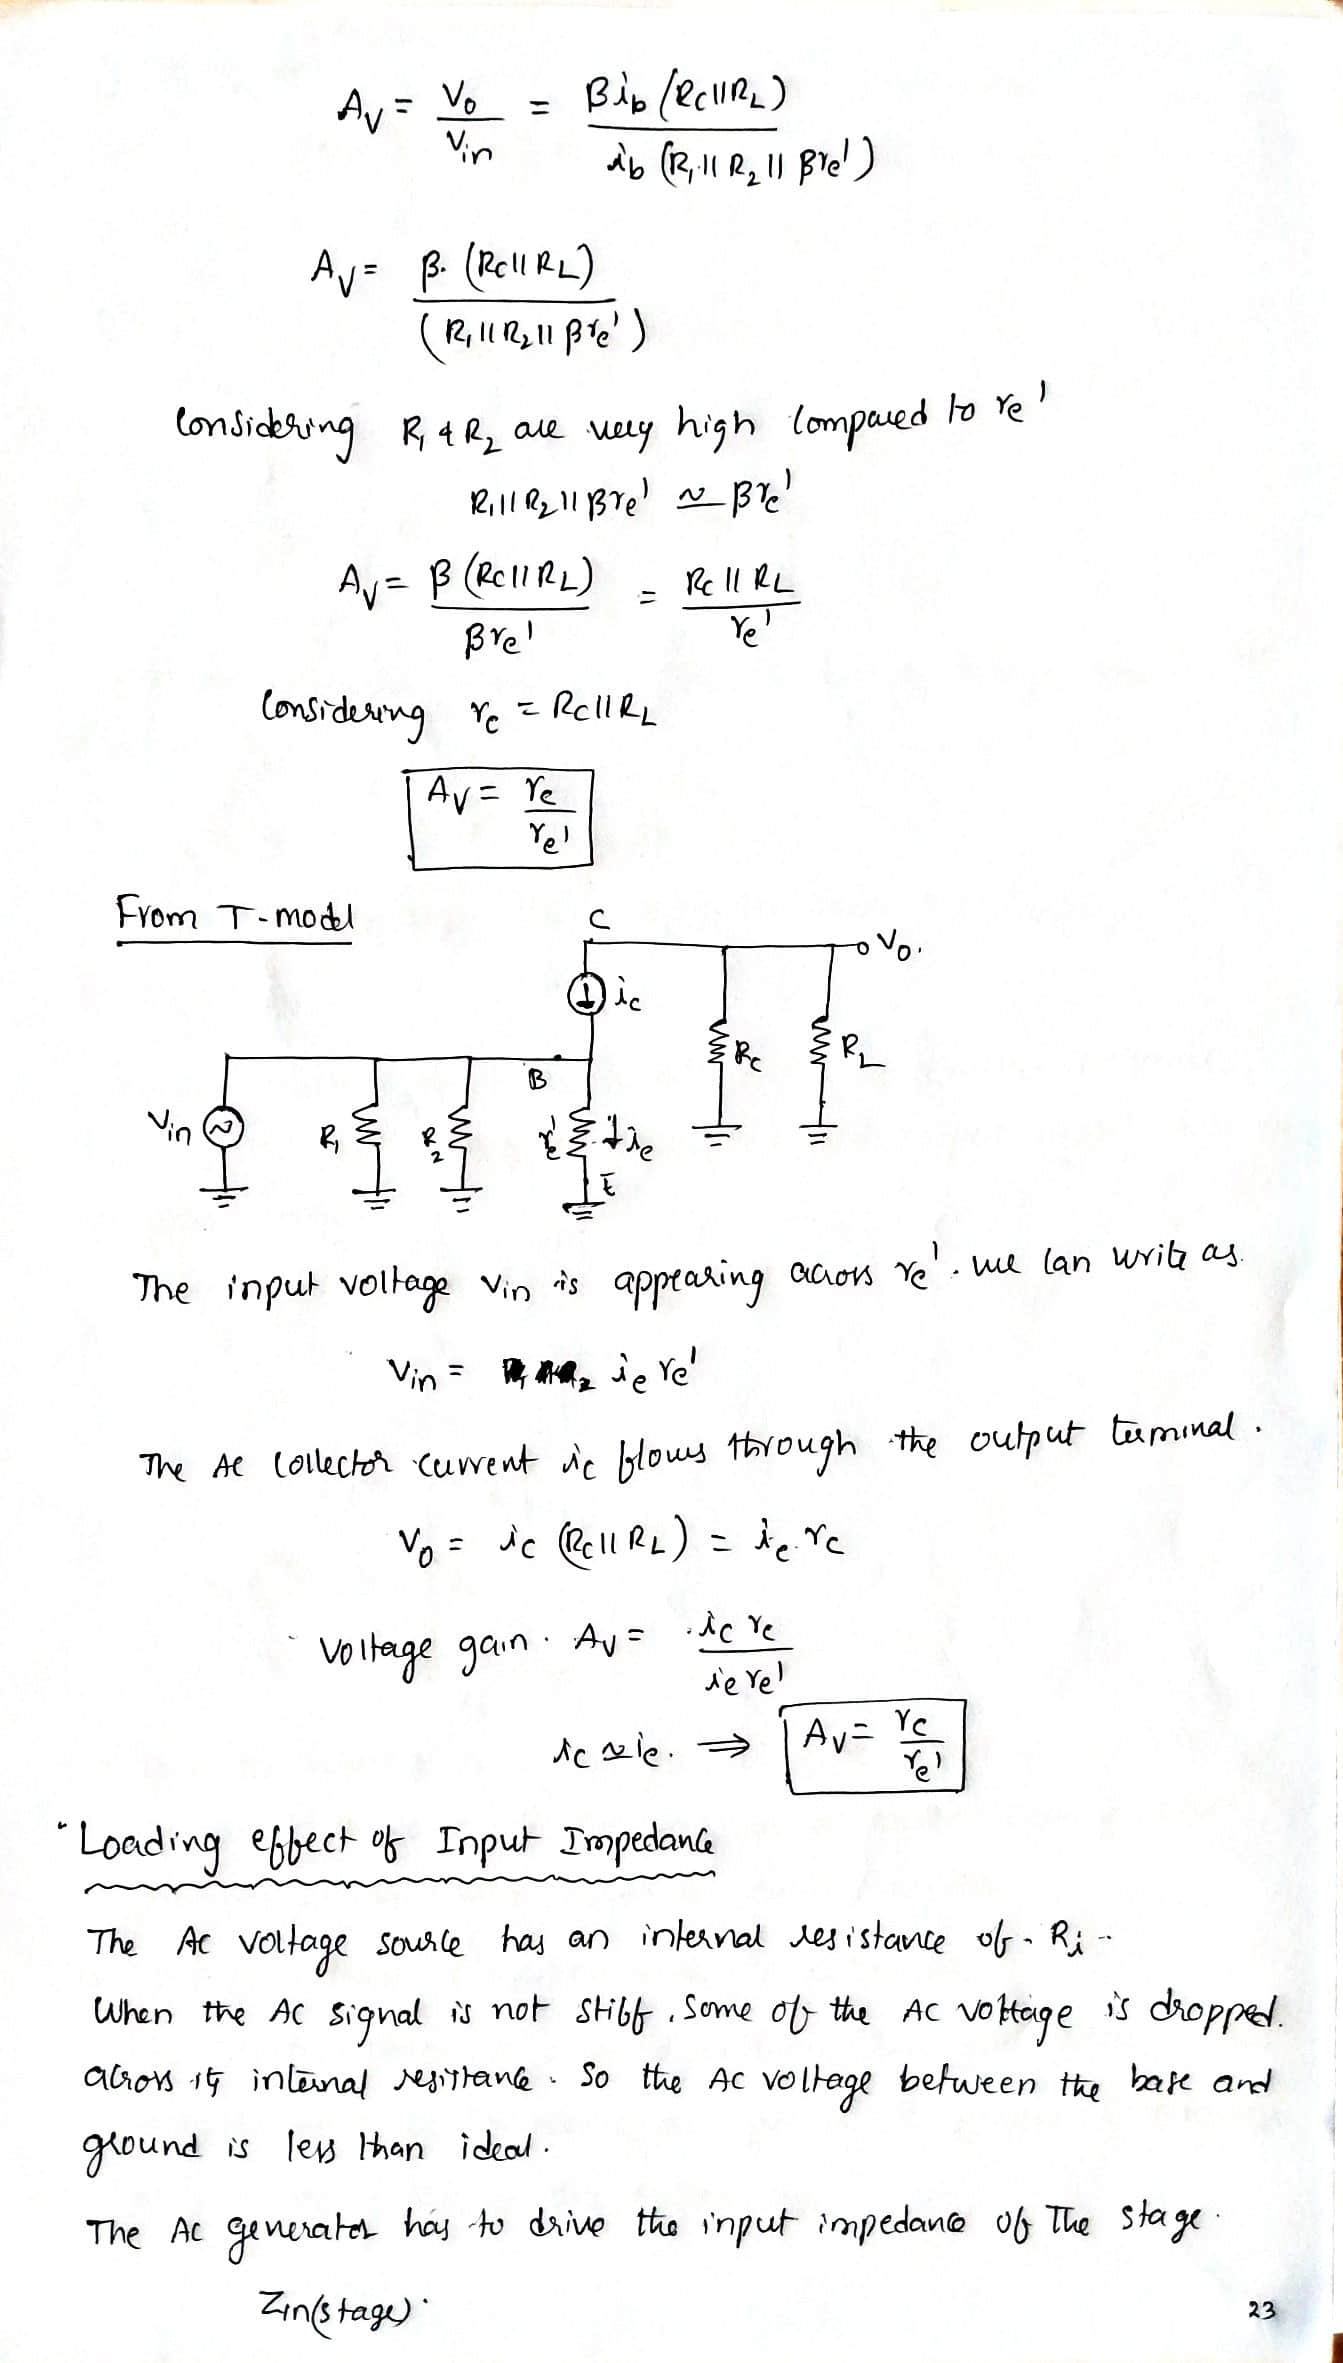 Av = Vo / Vin = βib (Rc||RL) / ib (R1||R2||βre')
Av = β. (Rc||RL) / (R1||R2||βre')
Considering R1 & R2 are very high compared to re'
R1||R2||βre' ≃ βre'
Av = β (Rc||RL) / βre' = Rc||RL / re'
Considering rc = Rc||RL
Av = rc / re'
From T-model
C
Vo.
ic
Rc
RL
B
Vin
R1
R2
re'
ie
E
The input voltage Vin is appearing across re'. we can write as.
Vin = ie re'
The AC collector current ic flows through the output terminal.
Vo = ic (Rc||RL) = ic.rc
Voltage gain. Av = ic rc / ie re'
ic ≃ ie. ⇒ Av = rc / re'
Loading effect of Input Impedance
The AC voltage source has an internal resistance of Ri
When the AC signal is not stiff, some of the AC voltage is dropped.
across its internal resistance. So the AC voltage between the base and
ground is less than ideal.
The AC generator has to drive the input impedance of The stage.
Zin(stage).
23